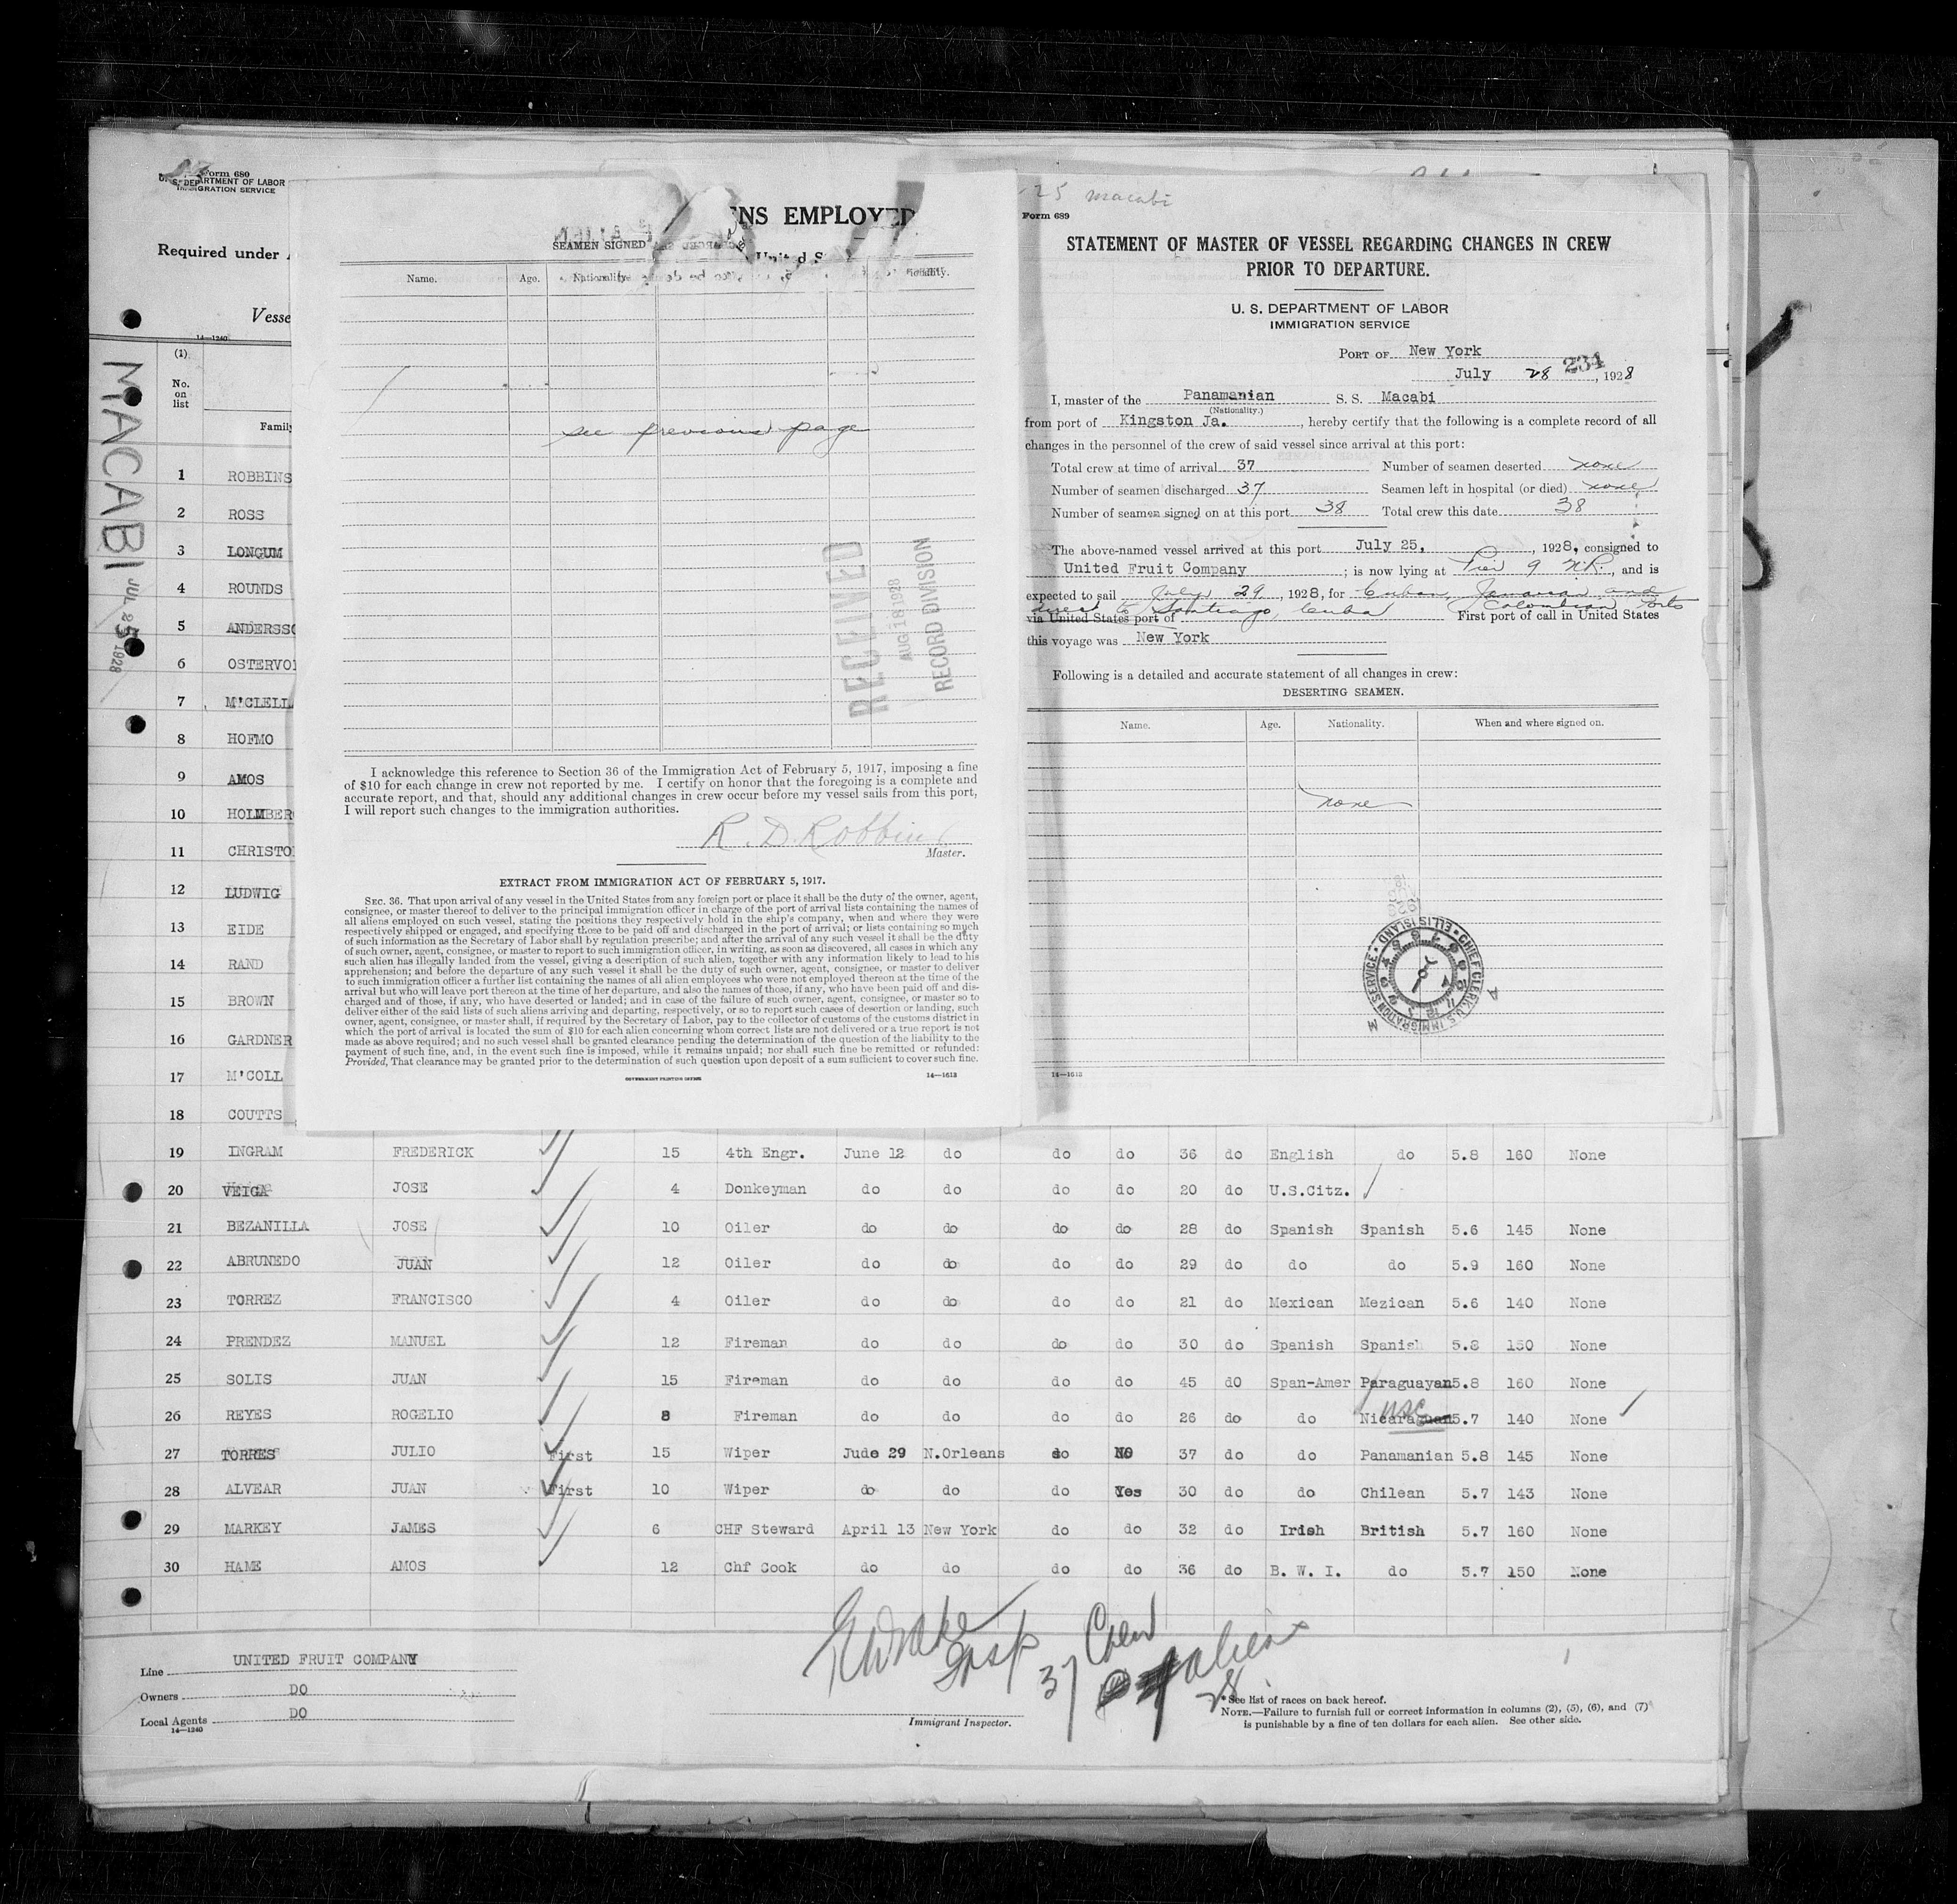 Form 680
U. S. DEPARTMENT OF LABOR
IMMIGRATION SERVICE
Required under
Vesse
14—1240
(1)
No.
on
list
Family
MACABI
JUL 25 1928
1 ROBBINS
2 ROSS
3 LONGUM
4 ROUNDS
5 ANDERSSO
6 OSTERVO
7 M'CLELL
8 HOFMO
9 AMOS
10 HOLMBER
11 CHRISTO
12 LUDWIG
13 EIDE
14 RAND
15 BROWN
16 GARDNER
17 M'COLL
18 COUTTS
ENS EMPLOYED
SEAMEN SIGNED
United S
Name. Age. Nationality.
see previous page
RECEIVED
AUG 18 1928
RECORD DIVISION
I acknowledge this reference to Section 36 of the Immigration Act of February 5, 1917, imposing a fine
of $10 for each change in crew not reported by me. I certify on honor that the foregoing is a complete and
accurate report, and that, should any additional changes in crew occur before my vessel sails from this port,
I will report such changes to the immigration authorities.
R. D. Robbins
Master.
EXTRACT FROM IMMIGRATION ACT OF FEBRUARY 5, 1917.
SEC. 36. That upon arrival of any vessel in the United States from any foreign port or place it shall be the duty of the owner, agent,
consignee, or master thereof to deliver to the principal immigration officer in charge of the port of arrival lists containing the names of
all aliens employed on such vessel, stating the positions they respectively hold in the ship's company, when and where they were
respectively shipped or engaged, and specifying those to be paid off and discharged in the port of arrival; or lists containing so much
of such information as the Secretary of Labor shall by regulation prescribe; and after the arrival of any such vessel it shall be the duty
of such owner, agent, consignee, or master to report to such immigration officer, in writing, as soon as discovered, all cases in which any
such alien has illegally landed from the vessel, giving a description of such alien, together with any information likely to lead to his
apprehension; and before the departure of any such vessel it shall be the duty of such owner, agent, consignee, or master to deliver
to such immigration officer a further list containing the names of all alien employees who were not employed thereon at the time of the
arrival but who will leave port thereon at the time of her departure, and also the names of those, if any, who have been paid off and dis-
charged and of those, if any, who have deserted or landed; and in case of the failure of such owner, agent, consignee, or master so to
deliver either of the said lists of such aliens arriving and departing, respectively, or so to report such cases of desertion or landing, such
owner, agent, consignee, or master shall, if required by the Secretary of Labor, pay to the collector of customs of the customs district in
which the port of arrival is located the sum of $10 for each alien concerning whom correct lists are not delivered or a true report is not
made as above required; and no such vessel shall be granted clearance pending the determination of the question of the liability to the
payment of such fine, and, in the event such fine is imposed, while it remains unpaid; nor shall such fine be remitted or refunded:
Provided, That clearance may be granted prior to the determination of such question upon deposit of a sum sufficient to cover such fine.
GOVERNMENT PRINTING OFFICE 14—1613
25 Macabi
Form 689
STATEMENT OF MASTER OF VESSEL REGARDING CHANGES IN CREW
PRIOR TO DEPARTURE.
U. S. DEPARTMENT OF LABOR
IMMIGRATION SERVICE
PORT OF New York
234
July 28, 1928
I, master of the Panamanian S. S. Macabi
(Nationality.)
from port of Kingston Ja., hereby certify that the following is a complete record of all
changes in the personnel of the crew of said vessel since arrival at this port:
Total crew at time of arrival 37 Number of seamen deserted none
Number of seamen discharged 37 Seamen left in hospital (or died) none
Number of seamen signed on at this port 38 Total crew this date 38
The above-named vessel arrived at this port July 25, 1928, consigned to
United Fruit Company; is now lying at Pier 9 N.R., and is
expected to sail July 29, 1928, for Cuban, Jamaican and
Colombian Ports
direct to Santiago, Cuba
via United States port of First port of call in United States
this voyage was New York
Following is a detailed and accurate statement of all changes in crew:
DESERTING SEAMEN.
Name. Age. Nationality. When and where signed on.
none
CHIEF CLERK, U.S. IMMIGRATION SERVICE • ELLIS ISLAND •
14—1613
19 INGRAM FREDERICK 15 4th Engr. June 12 do do do 36 do English do 5.8 160 None
20 VEIGA JOSE 4 Donkeyman do do do do 20 do U.S.Citz.
21 BEZANILLA JOSE 10 Oiler do do do do 28 do Spanish Spanish 5.6 145 None
22 ABRUNEDO JUAN 12 Oiler do do do do 29 do do do 5.9 160 None
23 TORREZ FRANCISCO 4 Oiler do do do do 21 do Mexican Mezican 5.6 140 None
24 PRENDEZ MANUEL 12 Fireman do do do do 30 do Spanish Spanish 5.8 150 None
25 SOLIS JUAN 15 Fireman do do do do 45 dO Span-Amer Paraguayan 5.8 160 None
26 REYES ROGELIO 8 Fireman do do do do 26 do do Nicaraguan USC 5.7 140 None
27 TORRES JULIO First 15 Wiper Jude 29 N.Orleans do NO 37 do do Panamanian 5.8 145 None
28 ALVEAR JUAN First 10 Wiper do do do Yes 30 do do Chilean 5.7 143 None
29 MARKEY JAMES 6 CHF Steward April 13 New York do do 32 do Irish British 5.7 160 None
30 HAME AMOS 12 Chf Cook do do do do 36 do B. W. I. do 5.7 150 None
Insp
37 Crew
28 aliens
Line UNITED FRUIT COMPANY
Owners DO
Local Agents DO
14—1240
Immigrant Inspector.
* See list of races on back hereof.
NOTE.—Failure to furnish full or correct information in columns (2), (5), (6), and (7)
is punishable by a fine of ten dollars for each alien. See other side.